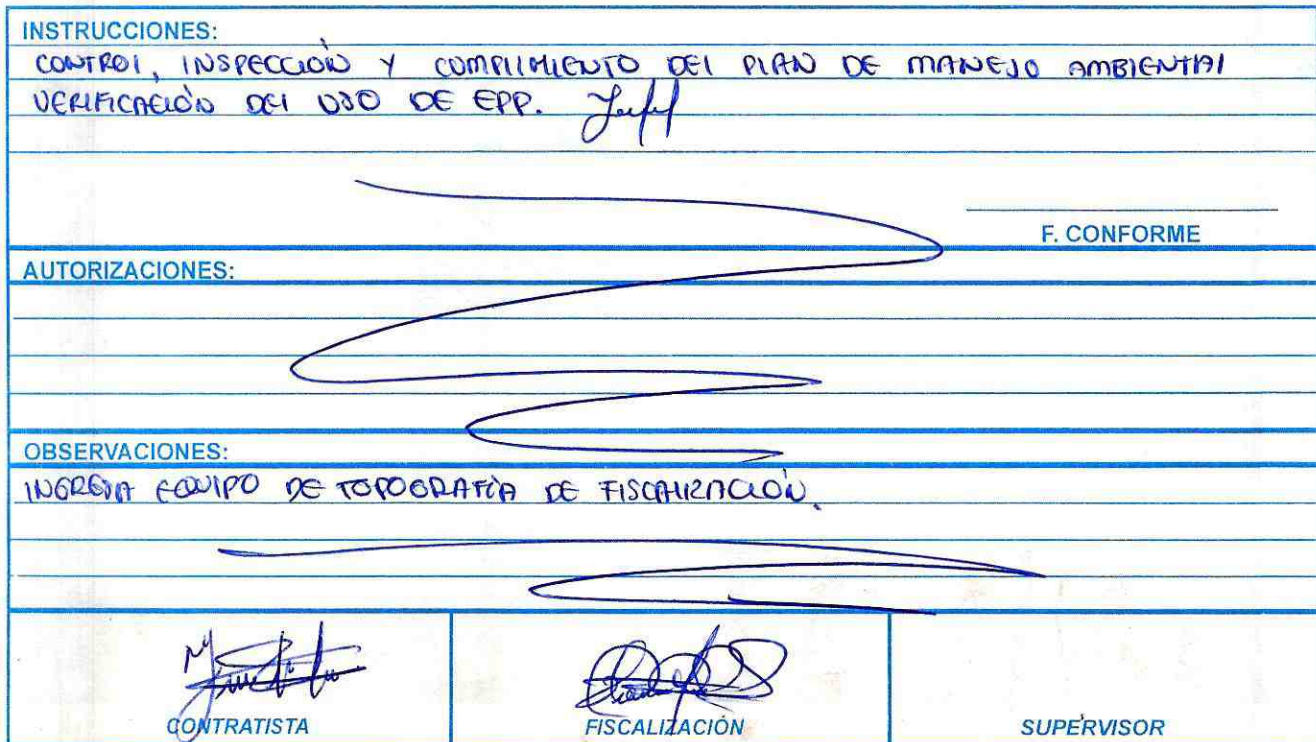 INSTRUCCIONES:
CONTROL, INSPECCIÓN Y CUMPLIMIENTO DEL PLAN DE MANEJO AMBIENTAL
VERIFICACIÓN DEL USO DE EPP.
F. CONFORME
AUTORIZACIONES:
OBSERVACIONES:
INGRESA EQUIPO DE TOPOGRAFÍA DE FISCALIZACIÓN.
CONTRATISTA FISCALIZACIÓN SUPERVISOR